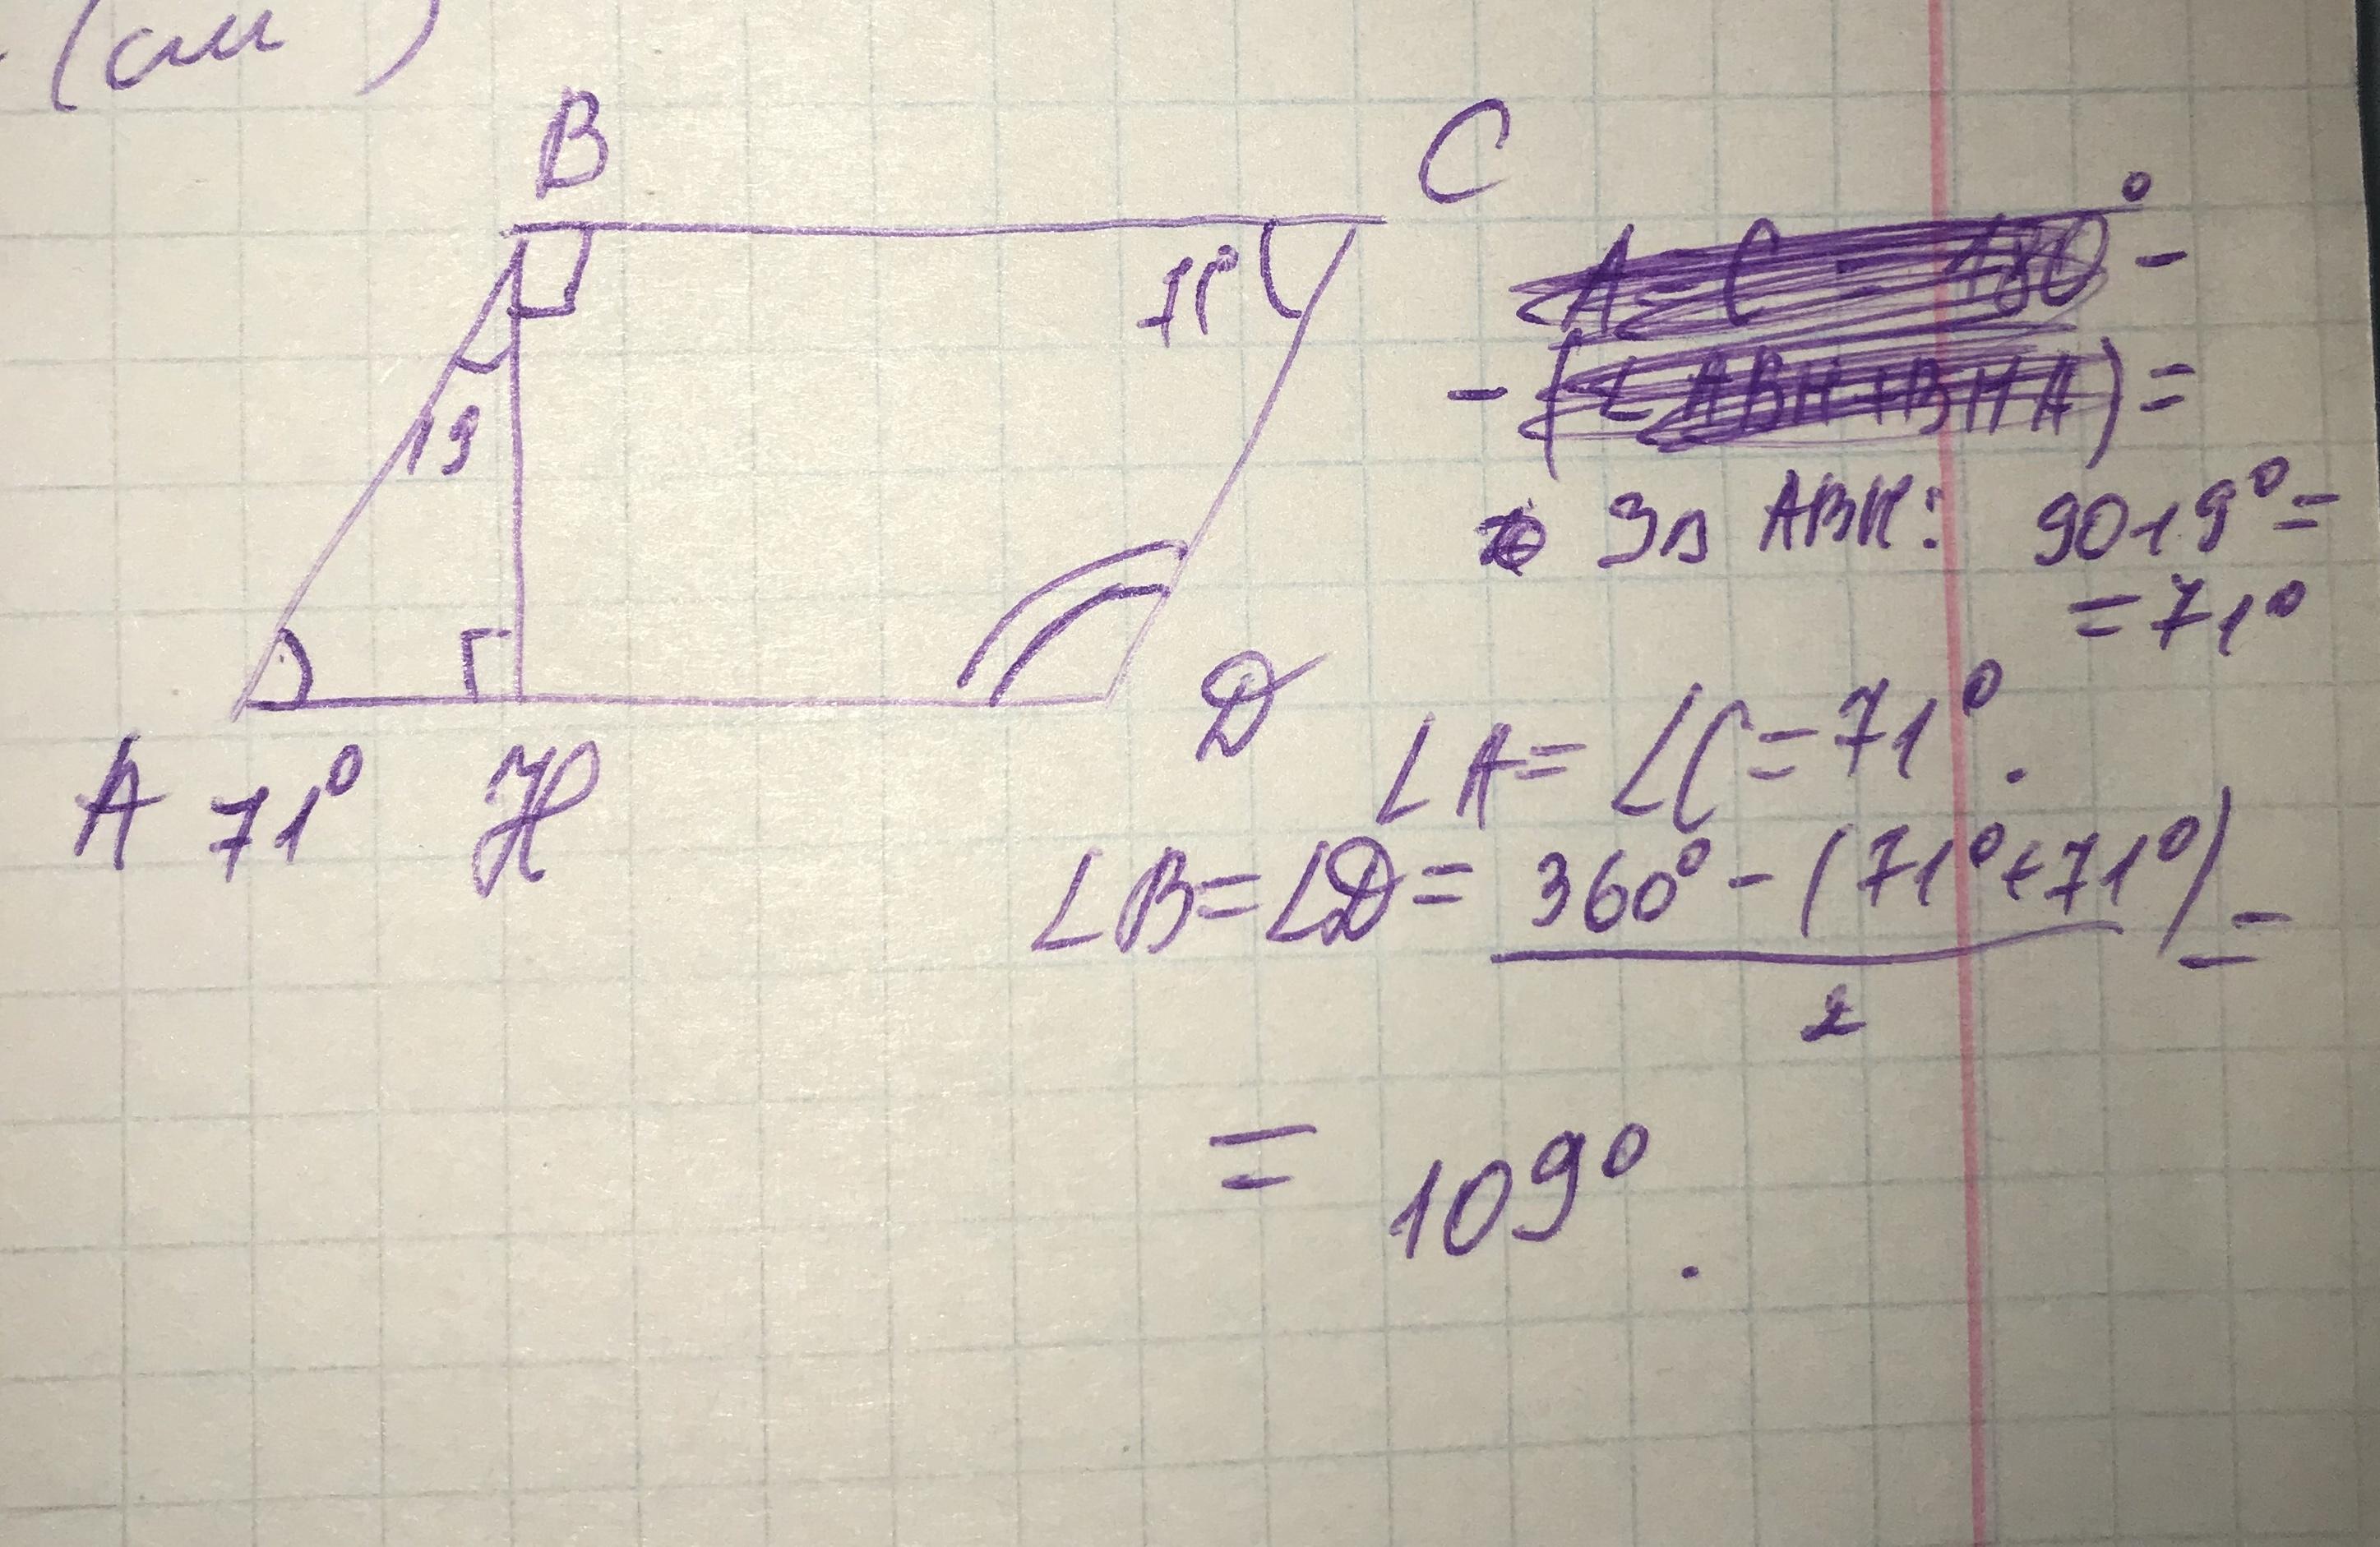 (см)
B C
71°
19
A 71° H
D
A = C = 180° -
- (∠ABH + BHA) =
Зп ABH: 90-19° =
= 71°
∠A = ∠C = 71°.
∠B = ∠D = 360° - (71° + 71°) =
2
= 109°.